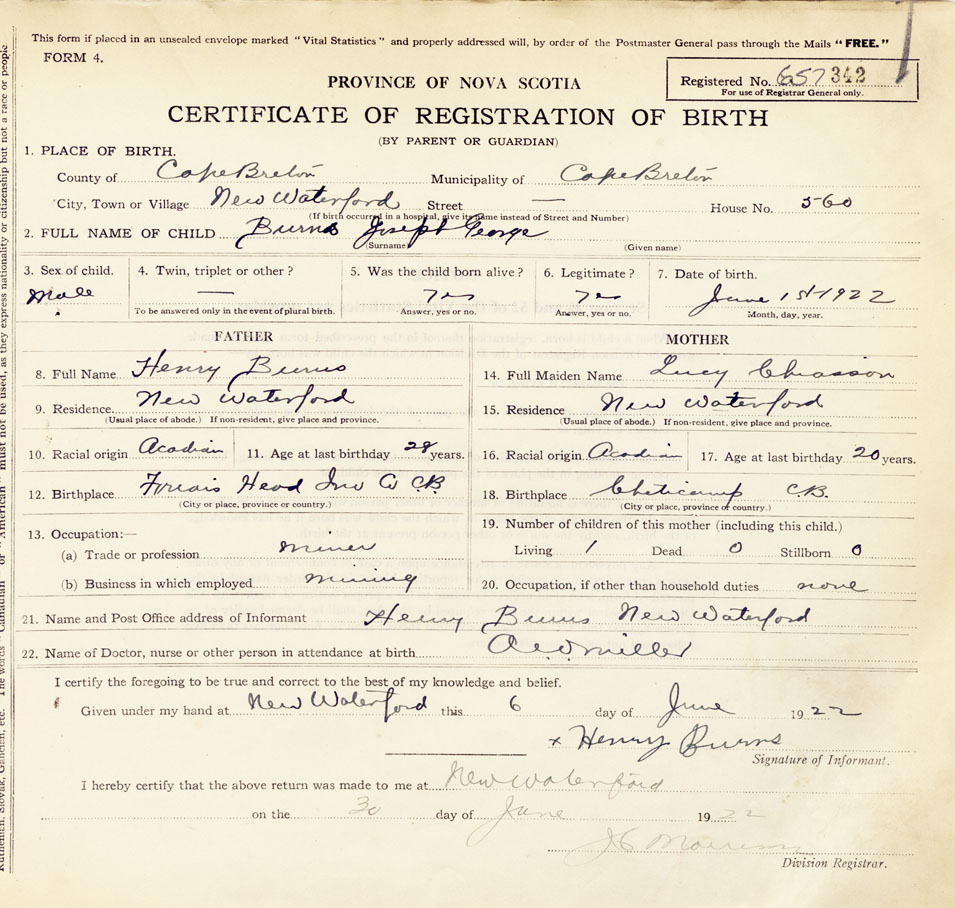 This form if placed in an unsealed envelope marked "Vital Statistics" and properly addressed will, by order of the Postmaster General pass through the Mails "FREE."
FORM 4.
PROVINCE OF NOVA SCOTIA
Registered No. 657342
For use of Registrar General only.
CERTIFICATE OF REGISTRATION OF BIRTH
(BY PARENT OR GUARDIAN)
1. PLACE OF BIRTH.
County of Cape Breton Municipality of Cape Breton
City, Town or Village New Waterford Street — House No. 560
(If birth occurred in a hospital, give its name instead of Street and Number)
2. FULL NAME OF CHILD Burns Joseph George
(Surname) (Given name)
3. Sex of child. 4. Twin, triplet or other? 5. Was the child born alive? 6. Legitimate? 7. Date of birth.
Male — Yes Yes June 1st 1922
To be answered only in the event of plural birth. Answer, yes or no. Answer, yes or no. Month, day, year.
FATHER MOTHER
8. Full Name Henry Burns 14. Full Maiden Name Lucy Chiasson
9. Residence New Waterford 15. Residence New Waterford
(Usual place of abode.) If non-resident, give place and province. (Usual place of abode.) If non-resident, give place and province.
10. Racial origin Acadian 11. Age at last birthday 28 years. 16. Racial origin Acadian 17. Age at last birthday 20 years.
12. Birthplace Head Inv Co CB 18. Birthplace Cheticamp C.B.
(City or place, province or country.) (City or place, province or country.)
13. Occupation:— 19. Number of children of this mother (including this child.)
(a) Trade or profession miner Living 1 Dead 0 Stillborn 0
(b) Business in which employed mining 20. Occupation, if other than household duties none
21. Name and Post Office address of Informant Henry Burns New Waterford
22. Name of Doctor, nurse or other person in attendance at birth miller
I certify the foregoing to be true and correct to the best of my knowledge and belief.
Given under my hand at New Waterford this 6 day of June 1922
x Henry Burns
Signature of Informant.
I hereby certify that the above return was made to me at New Waterford
on the 30 day of June 1922
Division Registrar.
Ruthenian, Slovak, Galician, etc. The words "Canadian" or "American" must not be used, as they express nationality or citizenship but not a race or people